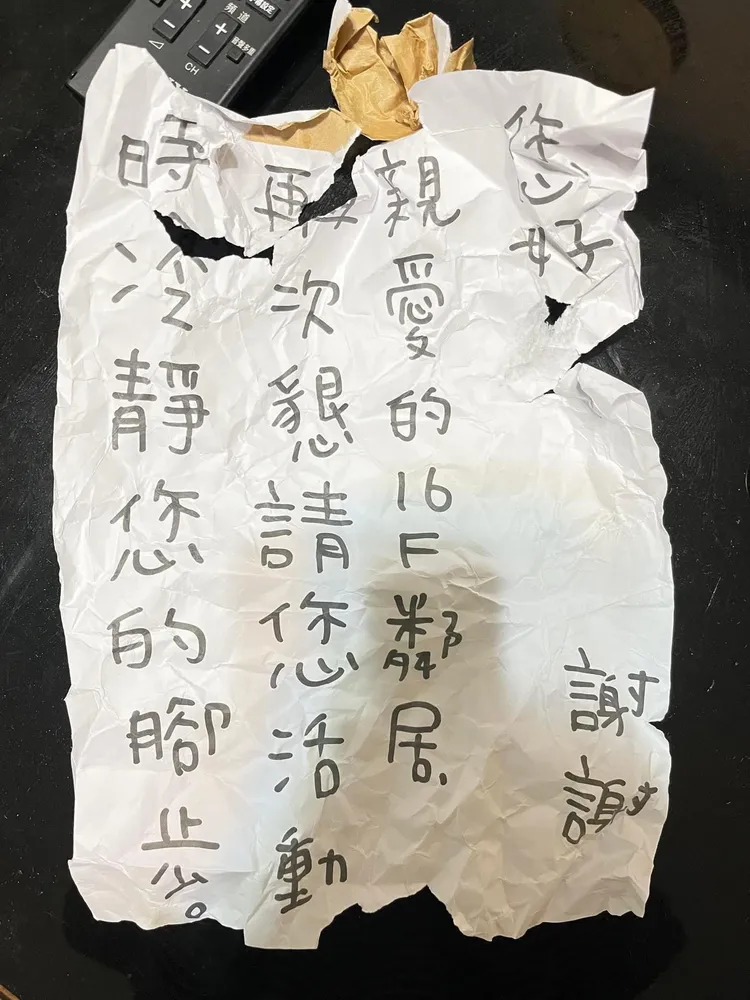 您好
親愛的16F鄰居,
再次懇請您活動
時冷靜您的腳步。
謝謝
頻道
+
-
CH